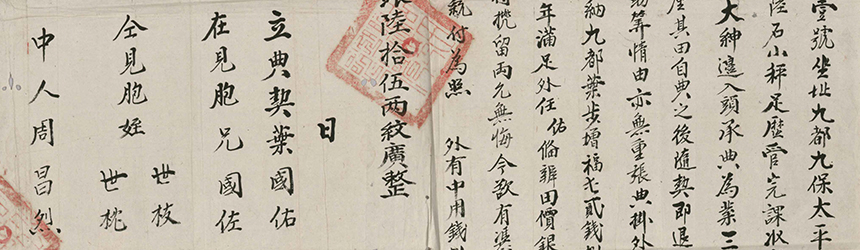 壹號坐址九都九保太平
陸石小秤足庄管完課收
大神邊入頭承典為業三
座其田自典之後隨契即退
等情由亦無重張典掛外
納九都葉步增福七貳錢
年滿足外任佑俻辦田價銀
挽留両允無悔今欲有憑
執付為照 外有中用錢
銀陸拾伍両紋廣整
日
立典契葉國佑
在見胞兄國佐
仝見胞姪 世枝 世桄
中人周昌烈